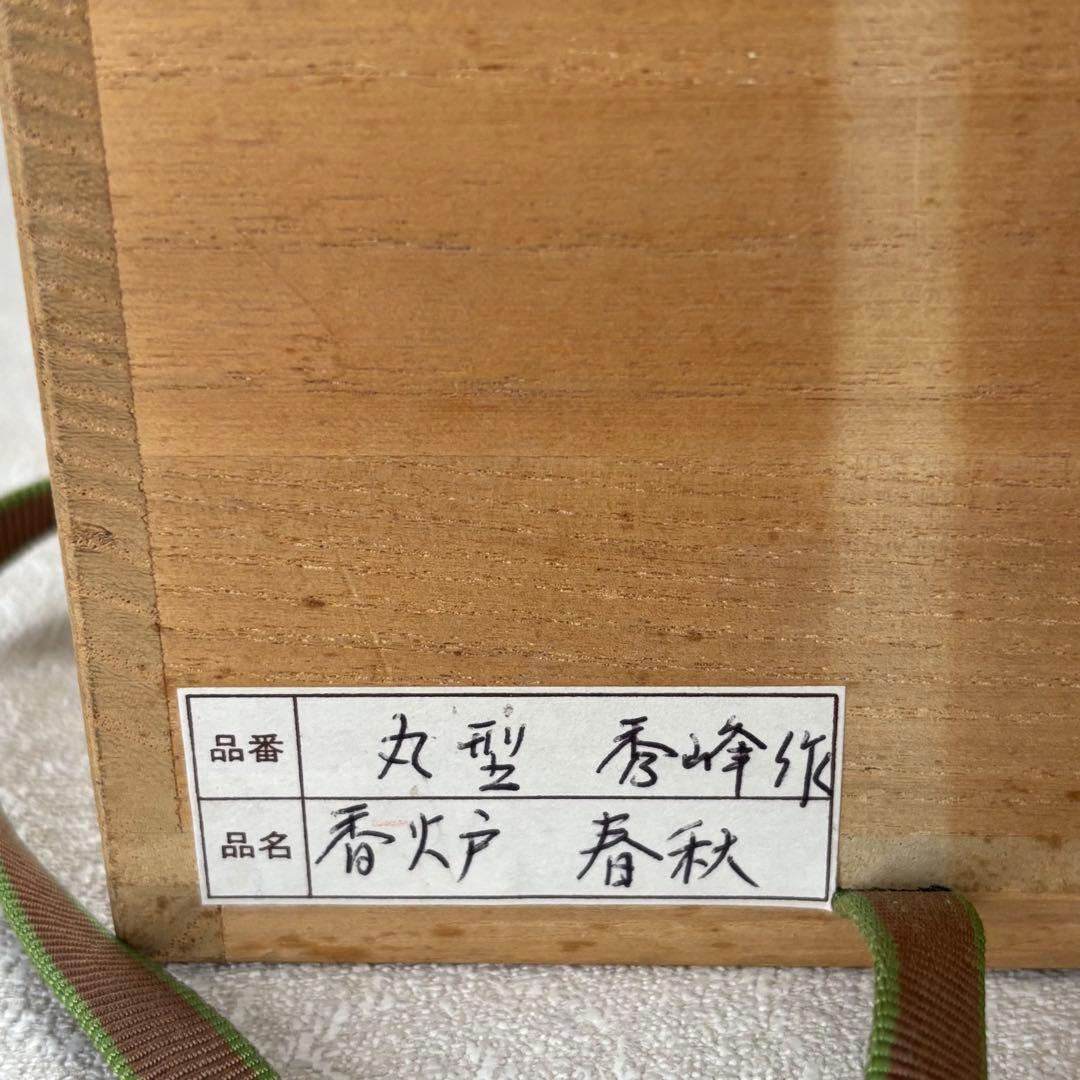 品番 丸型 秀峰作
品名 香炉 春秋